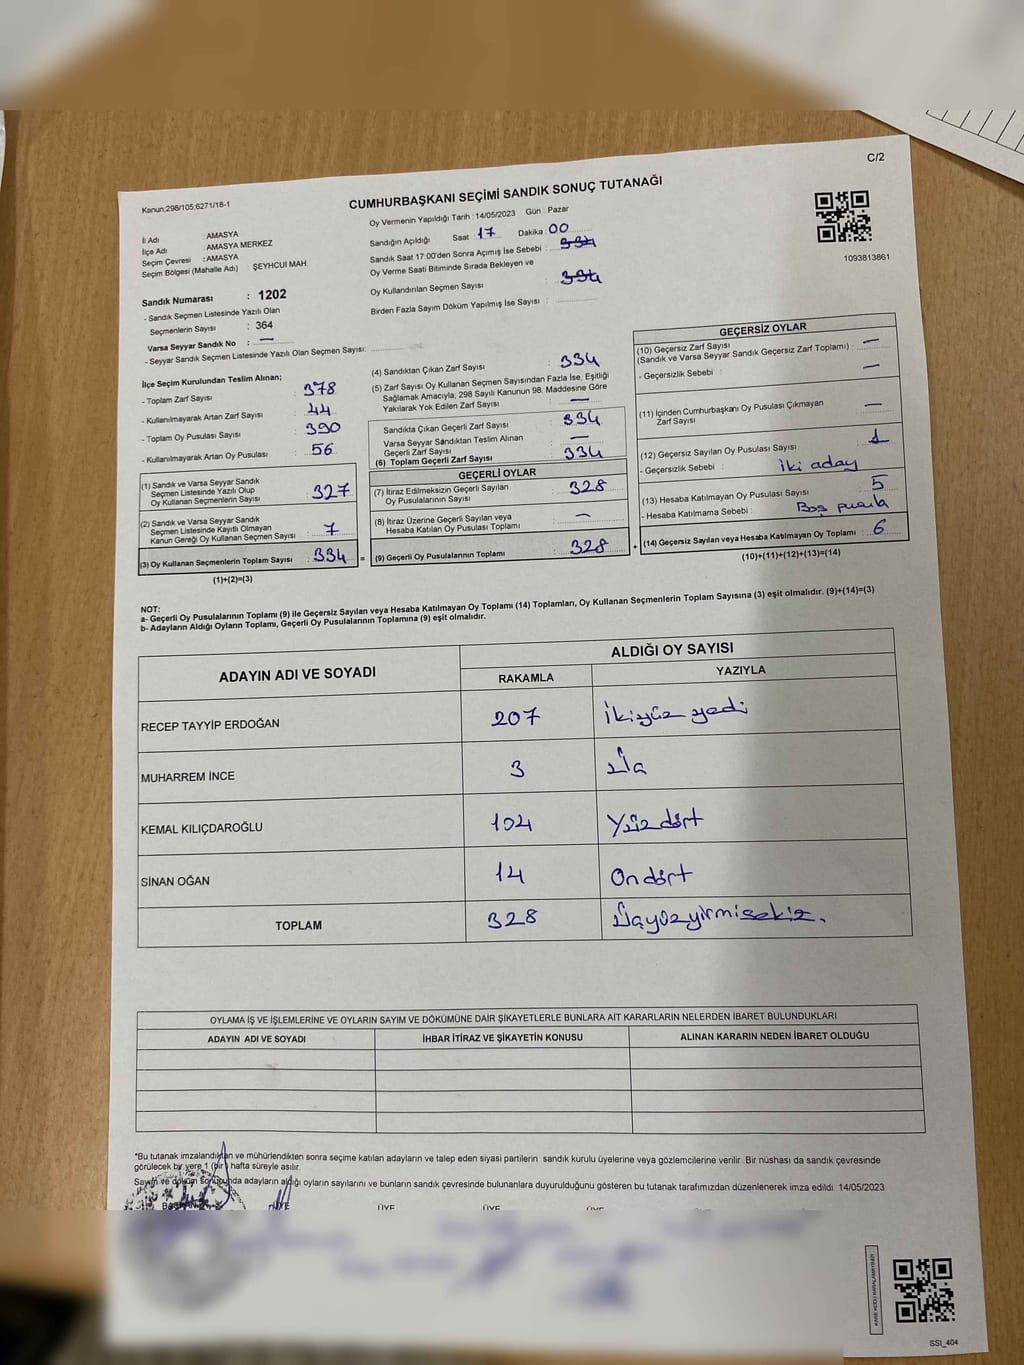 C/2
Kanun;298/105;6271/18-1
CUMHURBAŞKANI SEÇİMİ SANDIK SONUÇ TUTANAĞI
Oy Vermenin Yapıldığı Tarih : 14/05/2023 Gün : Pazar
1093813861
İl Adı : AMASYA
İlçe Adı : AMASYA MERKEZ
Seçim Çevresi : AMASYA
Seçim Bölgesi (Mahalle Adı) ŞEYHCUİ MAH.
Sandığın Açıldığı Saat : 17 Dakika : 00
Sandık Saat 17:00'den Sonra Açımış İse Sebebi : 334
Oy Verme Saati Bitiminde Sırada Bekleyen ve
Oy Kullandırılan Seçmen Sayısı : 334
Birden Fazla Sayım Döküm Yapılmış İse Sayısı :
Sandık Numarası : 1202
- Sandık Seçmen Listesinde Yazılı Olan
Seçmenlerin Sayısı : 364
Varsa Seyyar Sandık No : —
- Seyyar Sandık Seçmen Listesinde Yazılı Olan Seçmen Sayısı:
İlçe Seçim Kurulundan Teslim Alınan;
- Toplam Zarf Sayısı : 378
- Kullanılmayarak Artan Zarf Sayısı : 44
- Toplam Oy Pusulası Sayısı : 390
- Kullanılmayarak Artan Oy Pusulası : 56
(1) Sandık ve Varsa Seyyar Sandık
Seçmen Listesinde Yazılı Olup
Oy Kullanan Seçmenlerin Sayısı : 327
(2) Sandık ve Varsa Seyyar Sandık
Seçmen Listesinde Kayıtlı Olmayan
Kanun Gereği Oy Kullanan Seçmen Sayısı : 7
(3) Oy Kullanan Seçmenlerin Toplam Sayısı : 334
(1)+(2)=(3)
(4) Sandıktan Çıkan Zarf Sayısı : 334
(5) Zarf Sayısı Oy Kullanan Seçmen Sayısından Fazla İse, Eşitliği
Sağlamak Amacıyla, 298 Sayılı Kanunun 98. Maddesine Göre
Yakılarak Yok Edilen Zarf Sayısı : —
Sandıkta Çıkan Geçerli Zarf Sayısı : 334
Varsa Seyyar Sandıktan Teslim Alınan
Geçerli Zarf Sayısı : —
(6) Toplam Geçerli Zarf Sayısı : 334
GEÇERLİ OYLAR
(7) İtiraz Edilmeksizin Geçerli Sayılan
Oy Pusulalarının Sayısı : 328
(8) İtiraz Üzerine Geçerli Sayılan veya
Hesaba Katılan Oy Pusulası Toplamı : —
(9) Geçerli Oy Pusulalarının Toplamı : 328
GEÇERSİZ OYLAR
(10) Geçersiz Zarf Sayısı
(Sandık ve Varsa Seyyar Sandık Geçersiz Zarf Toplamı) : —
- Geçersizlik Sebebi : —
(11) İçinden Cumhurbaşkanı Oy Pusulası Çıkmayan
Zarf Sayısı : —
(12) Geçersiz Sayılan Oy Pusulası Sayısı : 1
- Geçersizlik Sebebi : iki aday
(13) Hesaba Katılmayan Oy Pusulası Sayısı : 5
- Hesaba Katılmama Sebebi : Boş pusula
(14) Geçersiz Sayılan veya Hesaba Katılmayan Oy Toplamı : 6
(10)+(11)+(12)+(13)=(14)
NOT:
a- Geçerli Oy Pusulalarının Toplamı (9) ile Geçersiz Sayılan veya Hesaba Katılmayan Oy Toplamı (14) Toplamları, Oy Kullanan Seçmenlerin Toplam Sayısına (3) eşit olmalıdır. (9)+(14)=(3)
b- Adayların Aldığı Oyların Toplamı, Geçerli Oy Pusulalarının Toplamına (9) eşit olmalıdır.
ADAYIN ADI VE SOYADI
ALDIĞI OY SAYISI
RAKAMLA YAZIYLA
RECEP TAYYİP ERDOĞAN 207 İkiyüz yedi
MUHARREM İNCE 3 Üç
KEMAL KILIÇDAROĞLU 104 Yüz dört
SİNAN OĞAN 14 On dört
TOPLAM 328 Üçyüzyirmisekiz.
OYLAMA İŞ VE İŞLEMLERİNE VE OYLARIN SAYIM VE DÖKÜMÜNE DAİR ŞİKAYETLERLE BUNLARA AİT KARARLARIN NELERDEN İBARET BULUNDUKLARI
ADAYIN ADI VE SOYADI İHBAR İTİRAZ VE ŞİKAYETİN KONUSU ALINAN KARARIN NEDEN İBARET OLDUĞU
*Bu tutanak imzalandıktan ve mühürlendikten sonra seçime katılan adayların ve talep eden siyasi partilerin sandık kurulu üyelerine veya gözlemcilerine verilir .Bir nüshası da sandık çevresinde
görülecek bir yere 1 (bir ) hafta süreyle asılır.
Sayım ve döküm sonucunda adayların aldığı oyların sayılarını ve bunların sandık çevresinde bulunanlara duyurulduğunu gösteren bu tutanak tarafımızdan düzenlenerek imza edildi. 14/05/2023
BAŞKAN ÜYE ÜYE ÜYE ÜYE
SSI_404